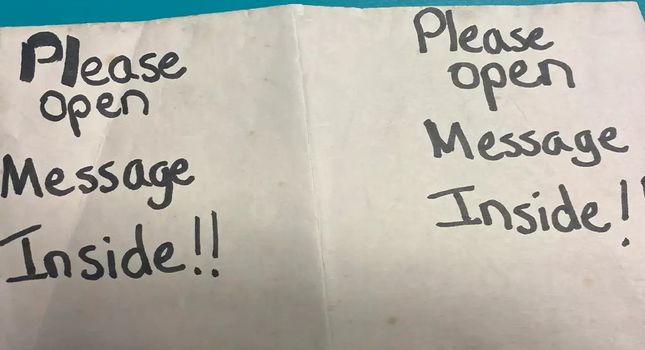 Please
open
Message
Inside!!
Please
open
Message
Inside!!